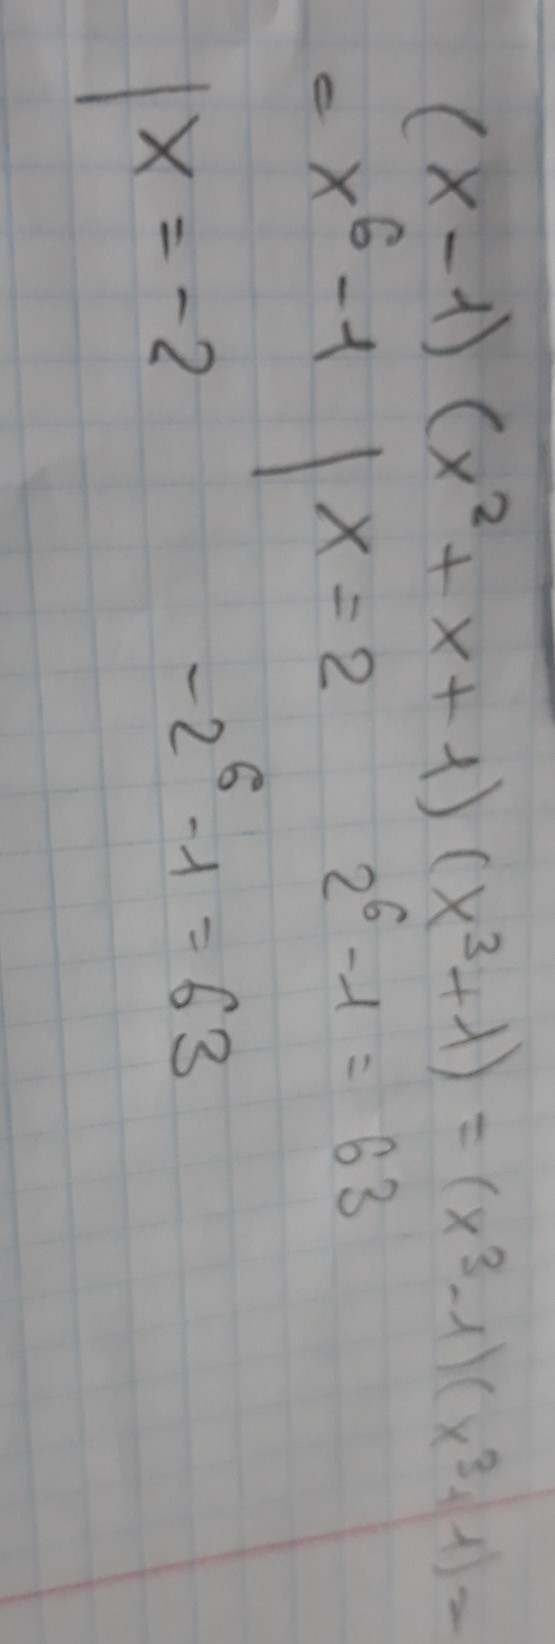 (x-1)(x²+x+1)(x³+1)=(x³-1)(x³+1)=
= x⁶-1 | x=2 2⁶-1= 63
| x=-2 -2⁶-1=63